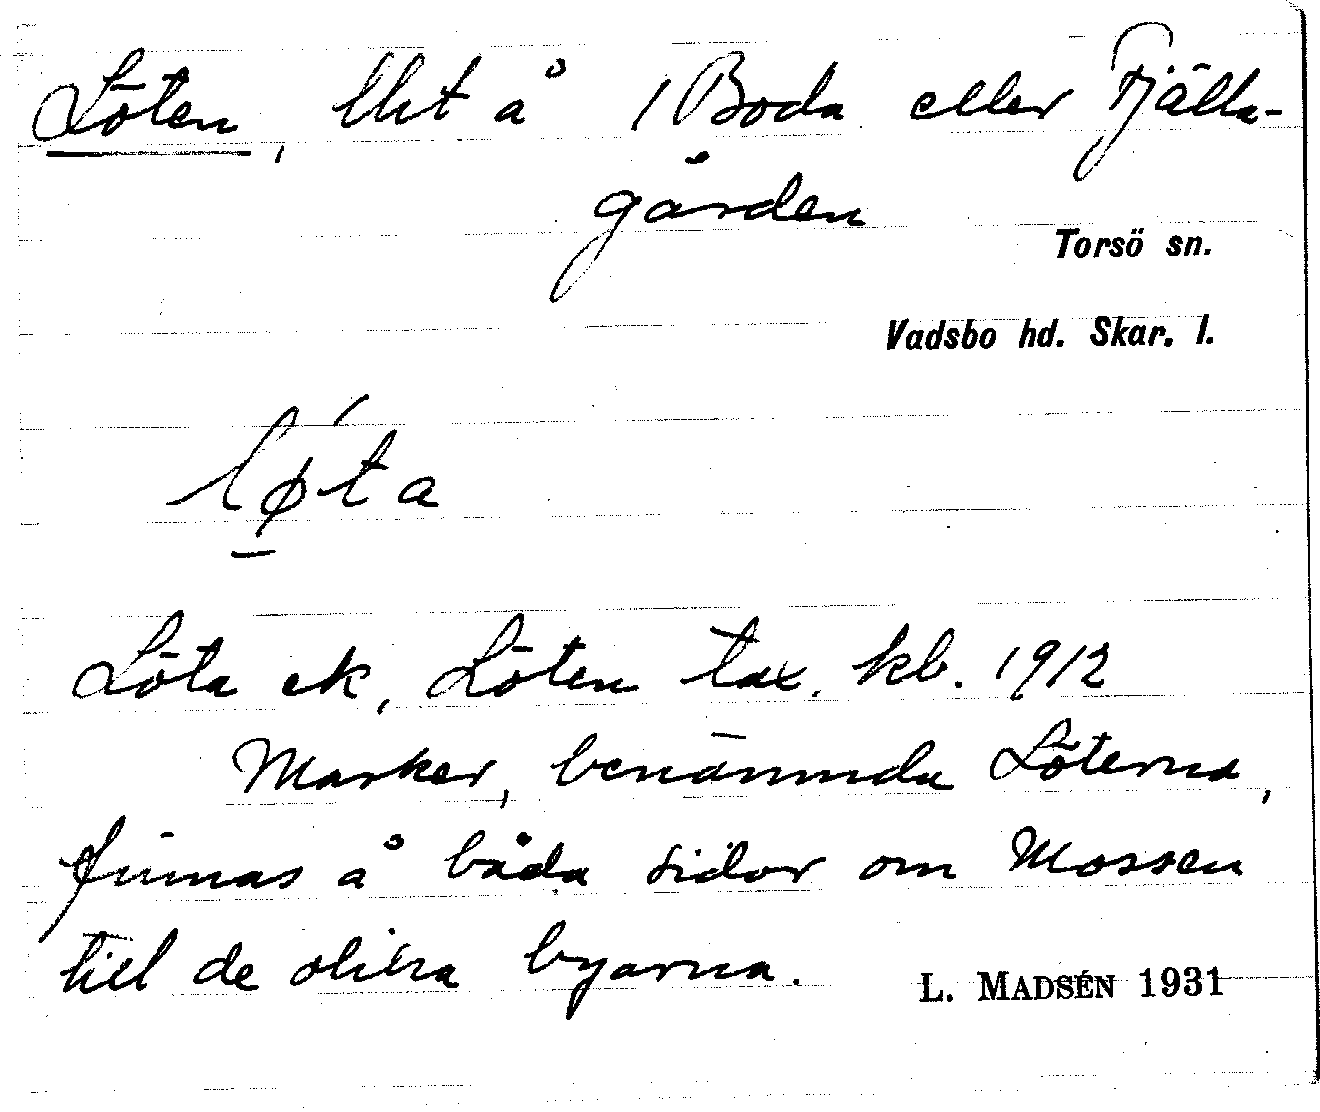 Löten, lht å 1 Boda eller Fjälla-
gården
Torsö sn.
Vadsbo hd. Skar. l.
lǿ̱ta
Löta ek, Löten tax. kb. 1912
Marker, benämnda Löterna,
finnas å båda sidor om Mossen
till de olika byarna.
L. MADSÉN 1931